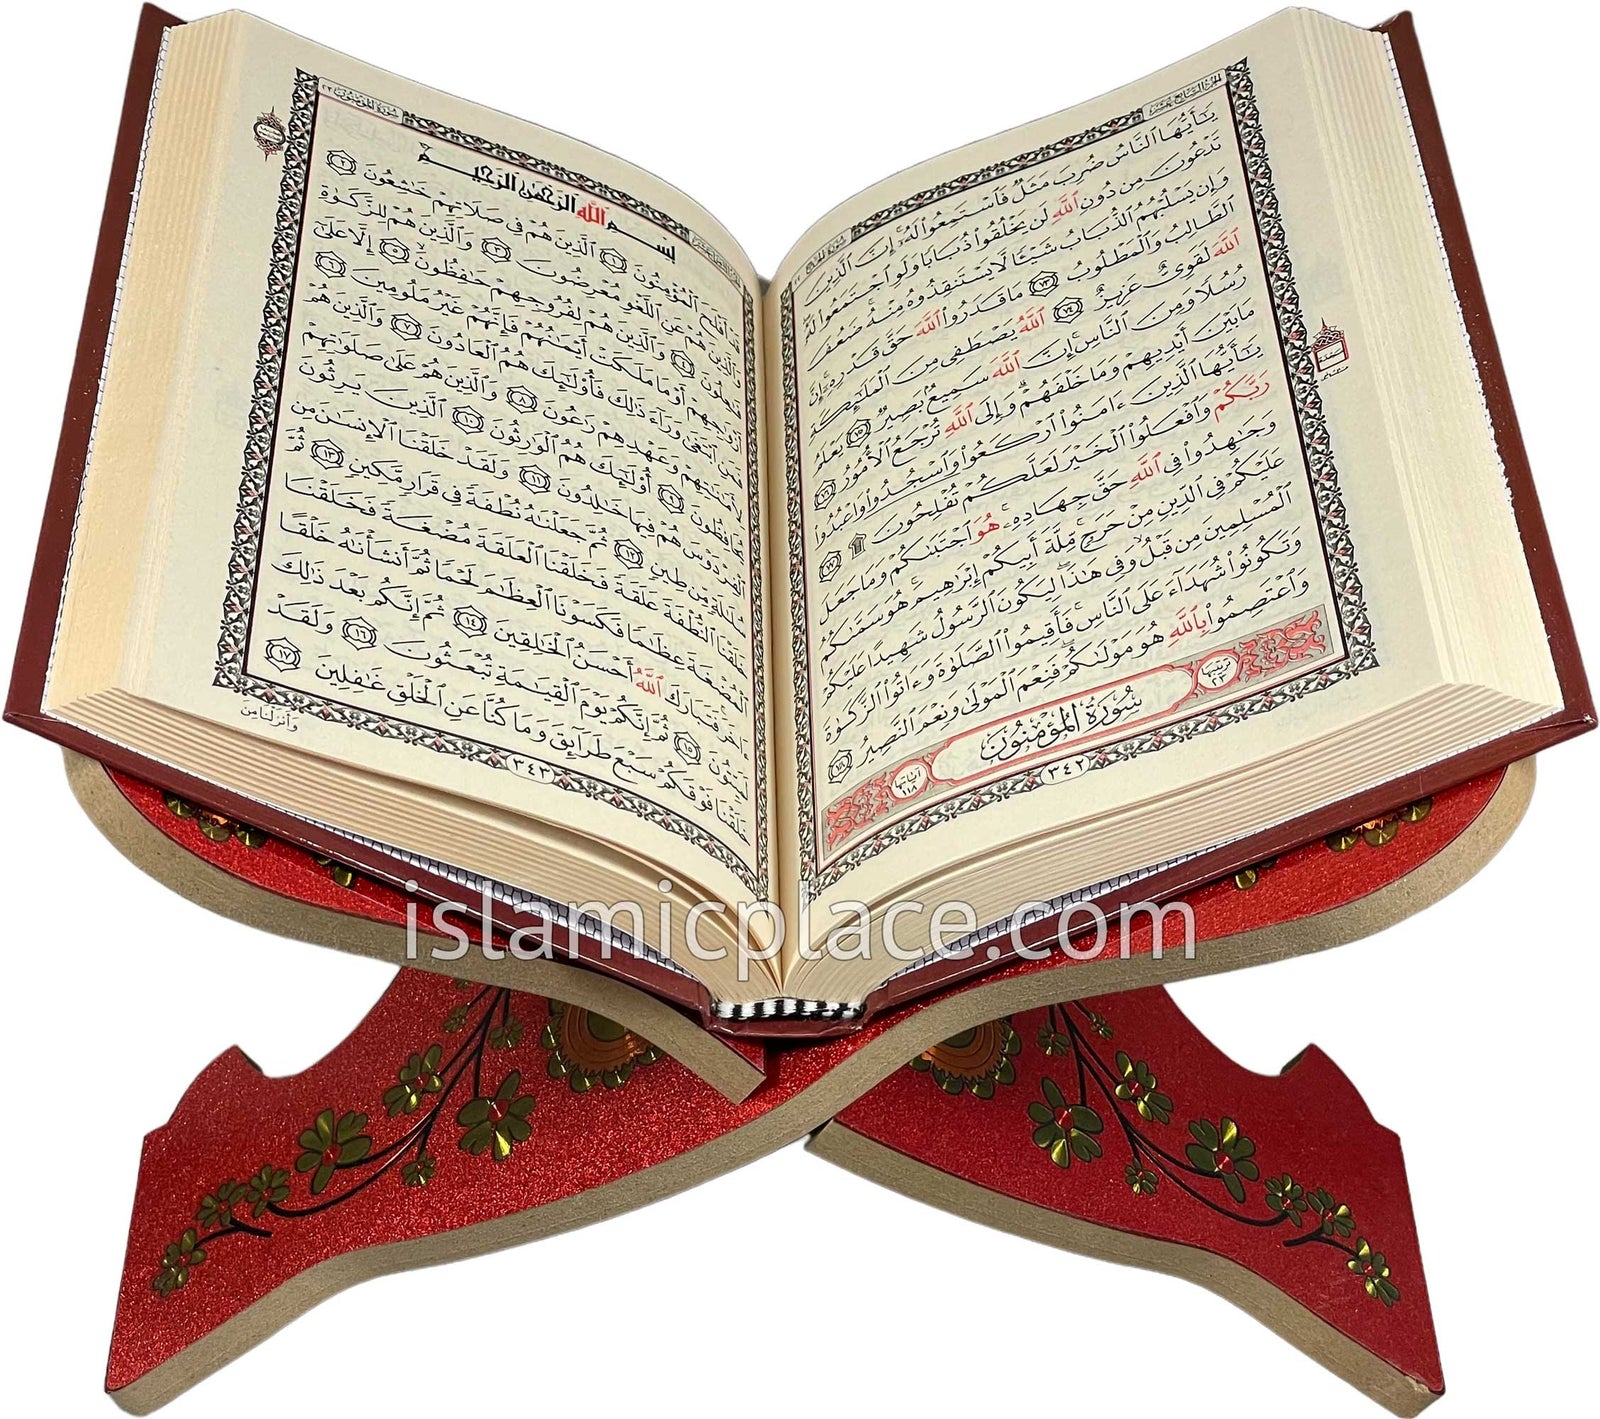 الجزء السابع عشر
سورة الحج ٢٢
يَٰٓأَيُّهَا ٱلنَّاسُ ضُرِبَ مَثَلٌ فَٱسْتَمِعُوا۟ لَهُۥٓ إِنَّ ٱلَّذِينَ
تَدْعُونَ مِن دُونِ ٱللَّهِ لَن يَخْلُقُوا۟ ذُبَابًا وَلَوِ ٱجْتَمَعُوا۟ لَهُۥ
وَإِن يَسْلُبْهُمُ ٱلذُّبَابُ شَيْـًٔا لَّا يَسْتَنقِذُوهُ مِنْهُ ضَعُفَ
ٱلطَّالِبُ وَٱلْمَطْلُوبُ ٧٣ مَا قَدَرُوا۟ ٱللَّهَ حَقَّ قَدْرِهِۦٓ إِنَّ
ٱللَّهَ لَقَوِىٌّ عَزِيزٌ ٧٤ ٱللَّهُ يَصْطَفِى مِنَ ٱلْمَلَٰٓئِكَةِ
رُسُلًا وَمِنَ ٱلنَّاسِ إِنَّ ٱللَّهَ سَمِيعٌۢ بَصِيرٌ ٧٥ يَعْلَمُ
مَا بَيْنَ أَيْدِيهِمْ وَمَا خَلْفَهُمْ وَإِلَى ٱللَّهِ تُرْجَعُ ٱلْأُمُورُ ٧٦
يَٰٓأَيُّهَا ٱلَّذِينَ ءَامَنُوا۟ ٱرْكَعُوا۟ وَٱسْجُدُوا۟ وَٱعْبُدُوا۟
رَبَّكُمْ وَٱفْعَلُوا۟ ٱلْخَيْرَ لَعَلَّكُمْ تُفْلِحُونَ ۩ ٧٧
وَجَٰهِدُوا۟ فِى ٱللَّهِ حَقَّ جِهَادِهِۦ هُوَ ٱجْتَبَىٰكُمْ وَمَا جَعَلَ
عَلَيْكُمْ فِى ٱلدِّينِ مِنْ حَرَجٍ مِّلَّةَ أَبِيكُمْ إِبْرَٰهِيمَ هُوَ سَمَّىٰكُمُ
ٱلْمُسْلِمِينَ مِن قَبْلُ وَفِى هَٰذَا لِيَكُونَ ٱلرَّسُولُ شَهِيدًا عَلَيْكُمْ
وَتَكُونُوا۟ شُهَدَآءَ عَلَى ٱلنَّاسِ فَأَقِيمُوا۟ ٱلصَّلَوٰةَ وَءَاتُوا۟ ٱلزَّكَوٰةَ
وَٱعْتَصِمُوا۟ بِٱللَّهِ هُوَ مَوْلَىٰكُمْ فَنِعْمَ ٱلْمَوْلَىٰ وَنِعْمَ ٱلنَّصِيرُ ٧٨
ترتيبها ٢٣ سُورَةُ المُؤْمِنُونَ آياتها ١١٨
٣٤٢
الجزء الثامن عشر
سورة المؤمنون ٢٣
بِسْمِ ٱللَّهِ ٱلرَّحْمَٰنِ ٱلرَّحِيمِ
قَدْ أَفْلَحَ ٱلْمُؤْمِنُونَ ١ ٱلَّذِينَ هُمْ فِى صَلَاتِهِمْ خَٰشِعُونَ ٢
وَٱلَّذِينَ هُمْ عَنِ ٱللَّغْوِ مُعْرِضُونَ ٣ وَٱلَّذِينَ هُمْ لِلزَّكَوٰةِ
فَٰعِلُونَ ٤ وَٱلَّذِينَ هُمْ لِفُرُوجِهِمْ حَٰفِظُونَ ٥ إِلَّا عَلَىٰٓ
أَزْوَٰجِهِمْ أَوْ مَا مَلَكَتْ أَيْمَٰنُهُمْ فَإِنَّهُمْ غَيْرُ مَلُومِينَ ٦
فَمَنِ ٱبْتَغَىٰ وَرَآءَ ذَٰلِكَ فَأُو۟لَٰٓئِكَ هُمُ ٱلْعَادُونَ ٧ وَٱلَّذِينَ هُمْ
لِأَمَٰنَٰتِهِمْ وَعَهْدِهِمْ رَٰعُونَ ٨ وَٱلَّذِينَ هُمْ عَلَىٰ صَلَوَٰتِهِمْ
يُحَافِظُونَ ٩ أُو۟لَٰٓئِكَ هُمُ ٱلْوَٰرِثُونَ ١٠ ٱلَّذِينَ يَرِثُونَ
ٱلْفِرْدَوْسَ هُمْ فِيهَا خَٰلِدُونَ ١١ وَلَقَدْ خَلَقْنَا ٱلْإِنسَٰنَ مِن
سُلَٰلَةٍ مِّن طِينٍ ١٢ ثُمَّ جَعَلْنَٰهُ نُطْفَةً فِى قَرَارٍ مَّكِينٍ ١٣ ثُمَّ
خَلَقْنَا ٱلنُّطْفَةَ عَلَقَةً فَخَلَقْنَا ٱلْعَلَقَةَ مُضْغَةً فَخَلَقْنَا
ٱلْمُضْغَةَ عِظَٰمًا فَكَسَوْنَا ٱلْعِظَٰمَ لَحْمًا ثُمَّ أَنشَأْنَٰهُ خَلْقًا
ءَاخَرَ فَتَبَارَكَ ٱللَّهُ أَحْسَنُ ٱلْخَٰلِقِينَ ١٤ ثُمَّ إِنَّكُم بَعْدَ ذَٰلِكَ
لَمَيِّتُونَ ١٥ ثُمَّ إِنَّكُمْ يَوْمَ ٱلْقِيَٰمَةِ تُبْعَثُونَ ١٦ وَلَقَدْ
خَلَقْنَا فَوْقَكُمْ سَبْعَ طَرَآئِقَ وَمَا كُنَّا عَنِ ٱلْخَلْقِ غَٰفِلِينَ ١٧
٣٤٣
وَأَنزَلْنَا مِنَ
islamicplace.com